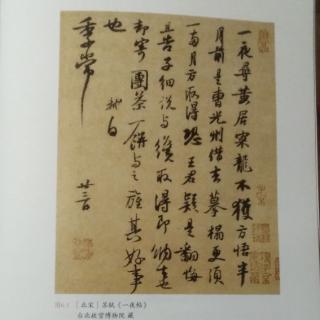 一夜尋黃居寀龍不獲方悟半
月前是曹光州借去摹搨更須
一兩月方取得恐王君疑是翻悔
且告子細說與纔取得即納去也
却寄團茶一餅與之旌其好事
也 軾白
季常 廿三日
图6.1 [北宋] 苏轼《一夜帖》
台北故宫博物院 藏